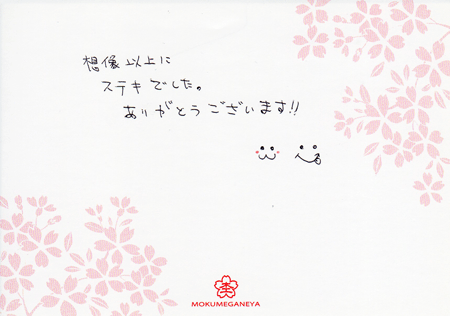 想像以上に
ステキでした。
ありがとうございます!!
MOKUMEGANEYA